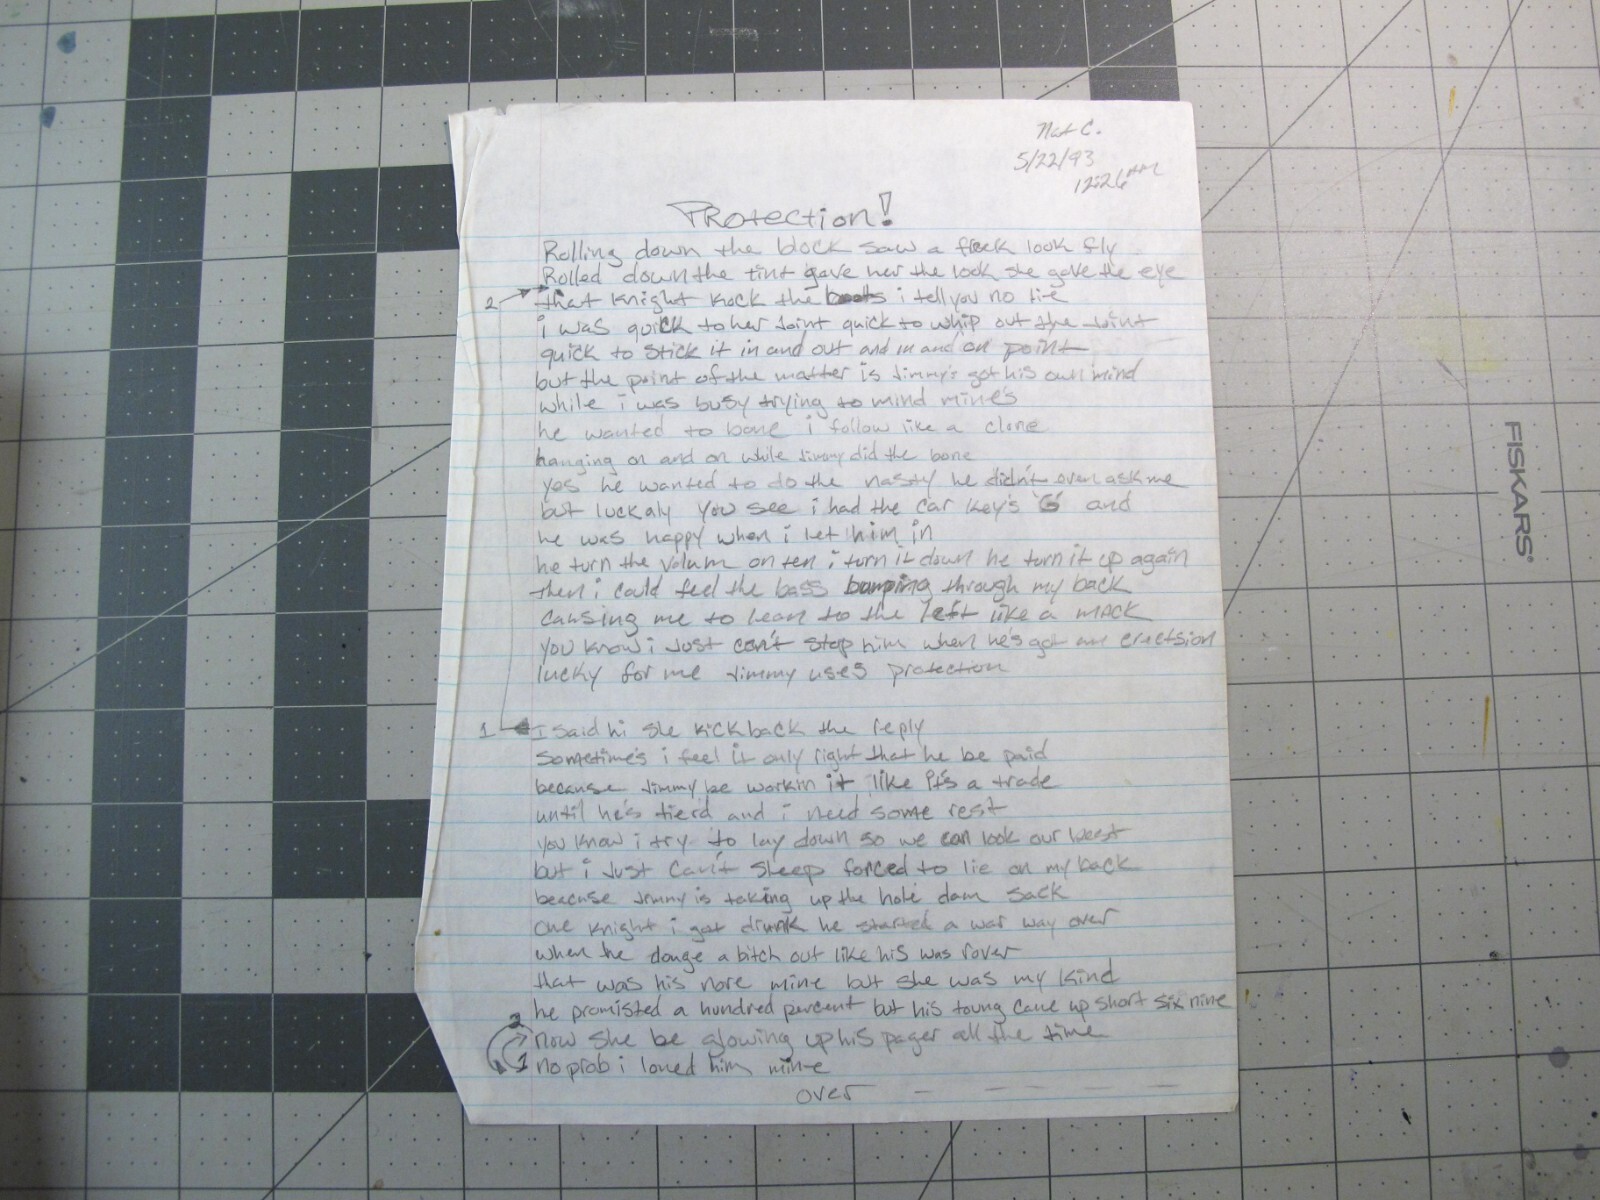 Nat C.
5/22/93
12:26 AM
Protection!
Rolling down the block saw a freek look fly
Rolled down the tint gave her the look she gave the eye
2 that knight knock the boots i tell you no lie
i was quick to her joint quick to whip out the joint
quick to stick it in and out and in and on point
but the point of the matter is Jimmy's got his own mind
while i was busy trying to mind mine's
he wanted to bone i follow like a clone
hanging on and on while Jimmy did the bone
yes he wanted to do the nasty he didn't even ask me
but luckaly you see i had the car key's G and
he was happy when i let him in
he turn the volum on ten i turn it down he turn it up again
then i could feel the bass bumping through my back
causing me to lean to the left like a mack
you know i just can't stop him when he's got an erectsion
lucky for me Jimmy uses protection
1 I said hi she kick back the reply
sometime's i feel it only right that he be paid
because Jimmy be workin it like it's a trade
until he's tierd and i need some rest
you know i try to lay down so we can look our best
but i just can't sleep forced to lie on my back
beacuse Jimmy is taking up the hole dam sack
one knight i got drunk he started a war way over
when he a bitch out like his was rover
that was his nore mine but she was my kind
he promisted a hundred percent but his toung came up short six nine
2 now she be glowing up his pager all the time
1 no prob i loned him mine
over - - - - -
FISKARS®